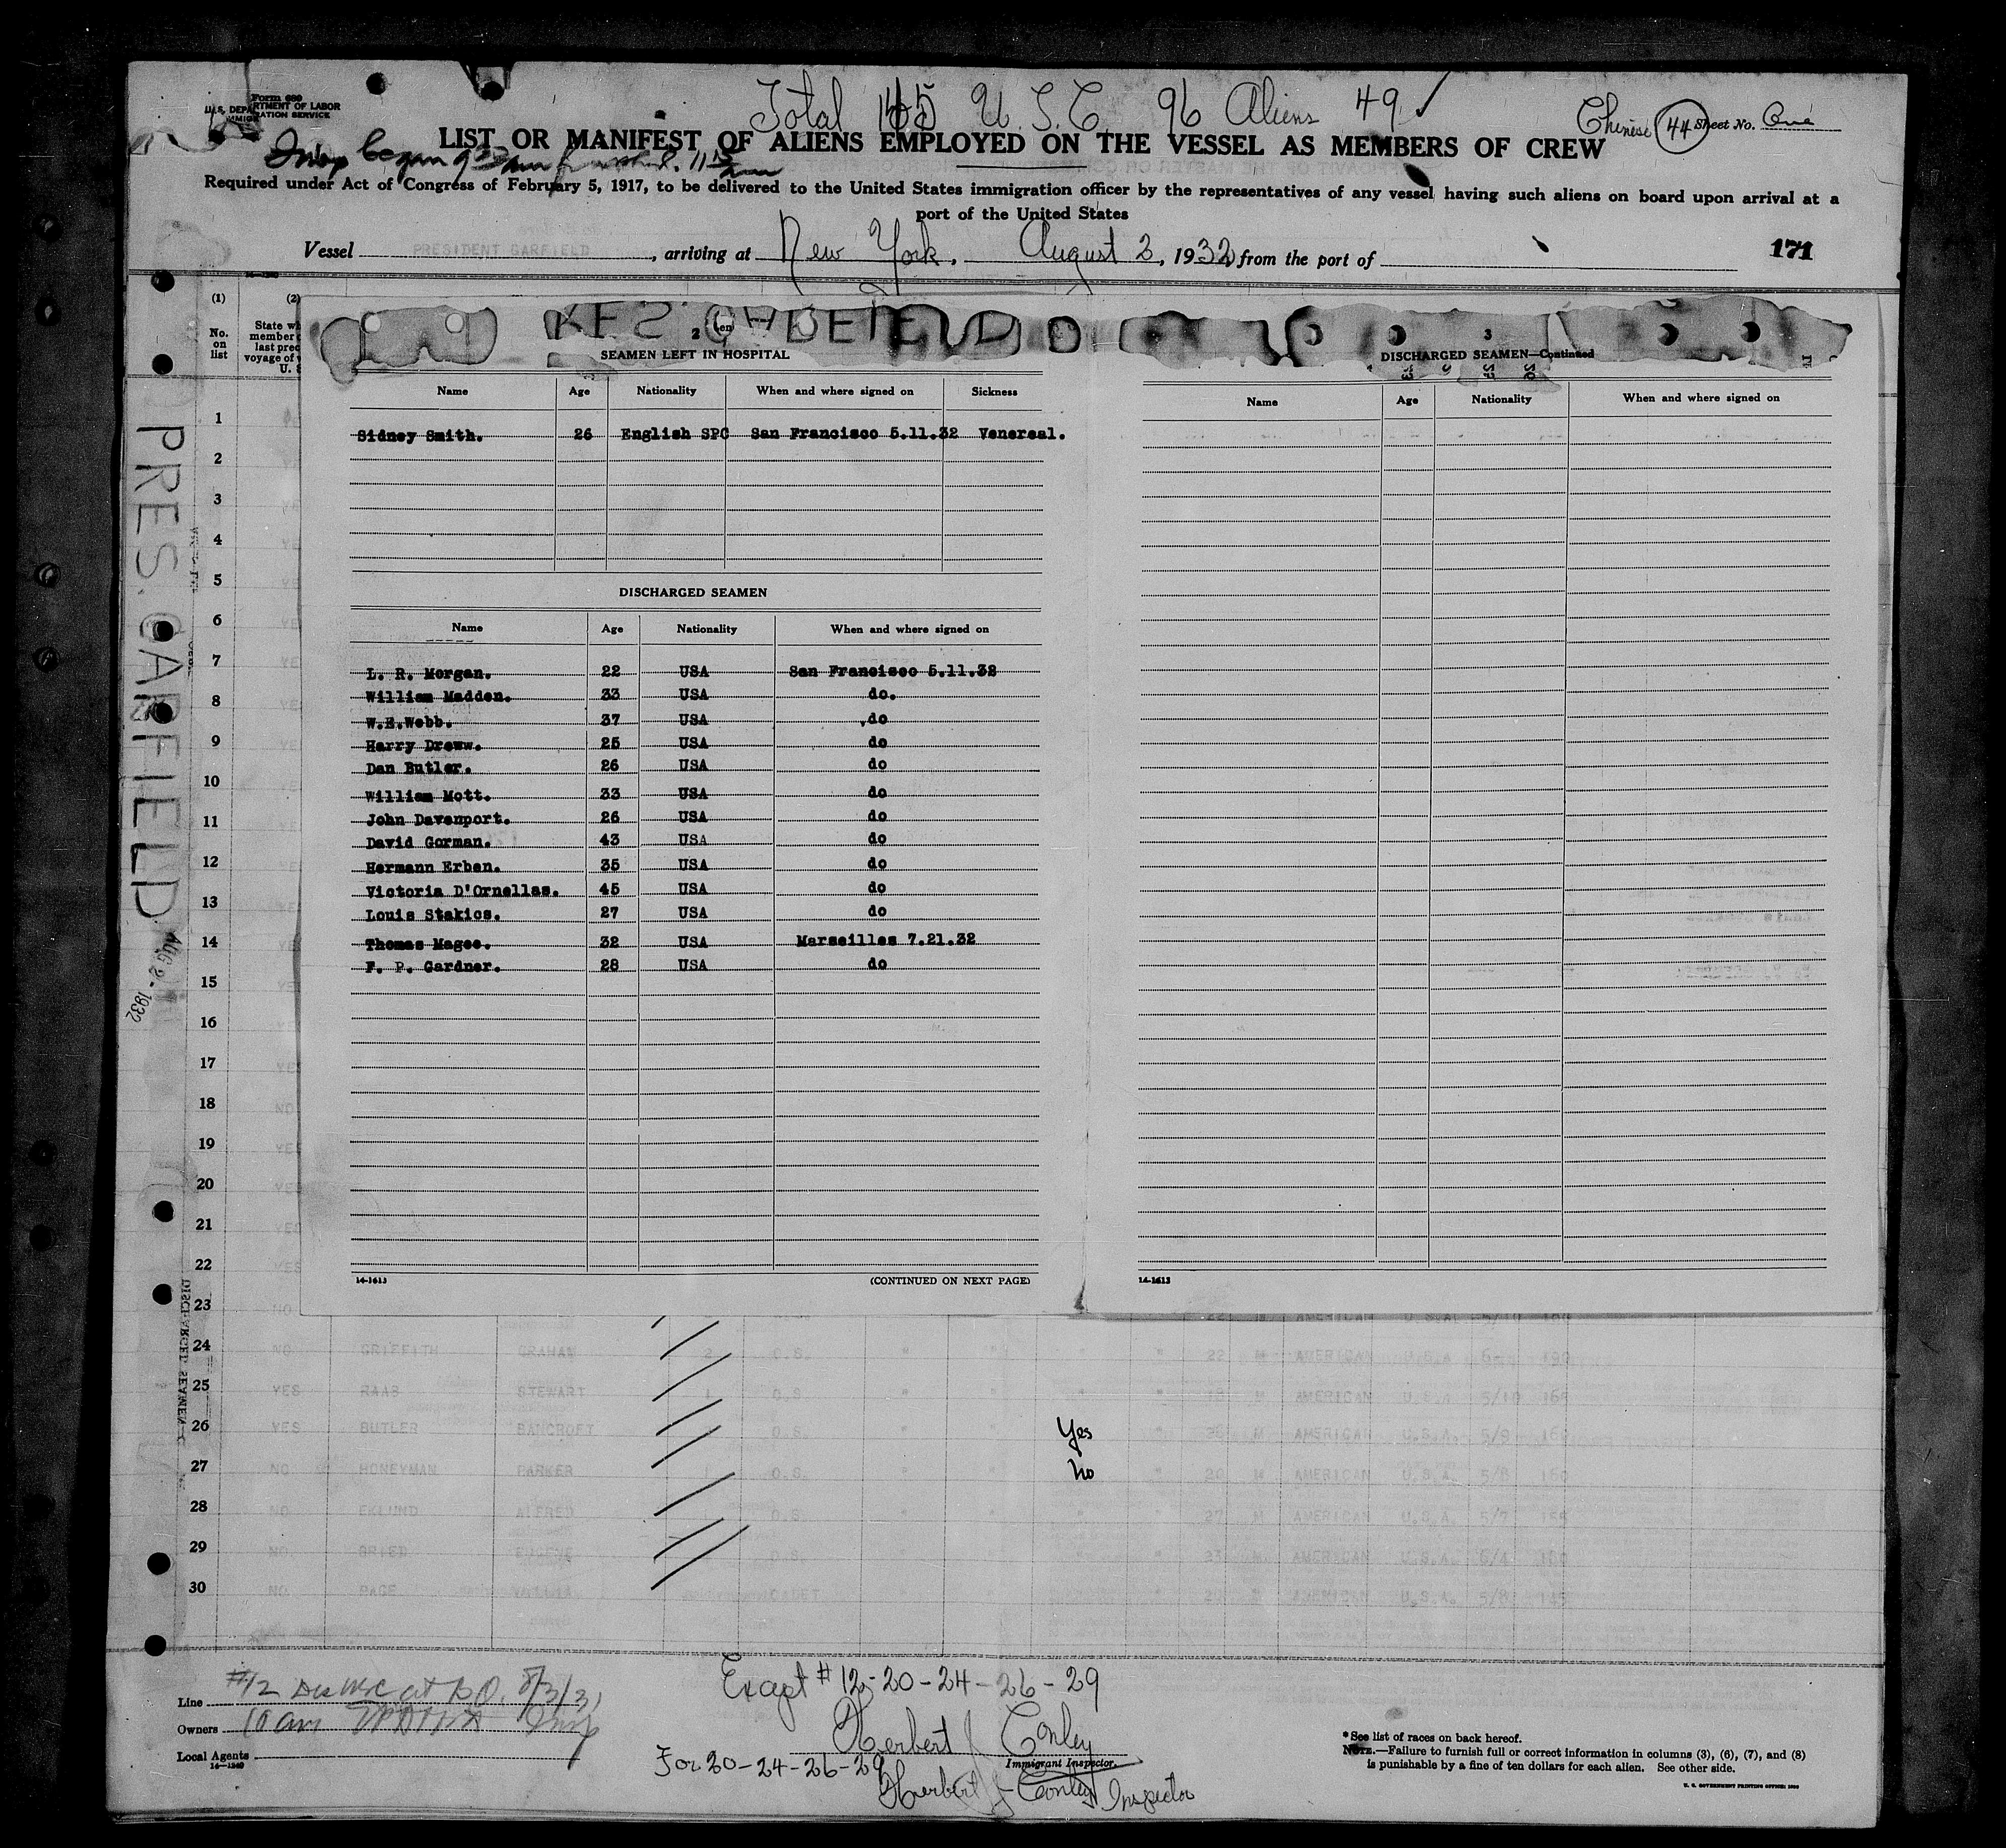 Form 680
U.S. DEPARTMENT OF LABOR
IMMIGRATION SERVICE
Total 145 U.S.C. 96 Aliens 49 ✓
Chinese 44 Sheet No. One
LIST OR MANIFEST OF ALIENS EMPLOYED ON THE VESSEL AS MEMBERS OF CREW
Insp began 9
Required under Act of Congress of February 5, 1917, to be delivered to the United States immigration officer by the representatives of any vessel having such aliens on board upon arrival at a
port of the United States
Vessel PRESIDENT GARFIELD, arriving at New York, August 2, 1932 from the port of
171
(1) (2)
No. on list
State wh
member
last prec
voyage of
U. S
PRES. GARFIELD
AUG 2 - 1932
2
SEAMEN LEFT IN HOSPITAL
Name Age Nationality When and where signed on Sickness
Sidney Smith. 26 English SPC San Francisco 5.11.32 Venereal.
DISCHARGED SEAMEN
Name Age Nationality When and where signed on
L. R. Morgan. 22 USA San Francisco 5.11.32
William Madden. 33 USA do.
W.E.Webb. 37 USA do
Harry Dreww. 25 USA do
Dan Butler. 26 USA do
William Mott. 33 USA do
John Davenport. 26 USA do
David Gorman. 43 USA do
Hermann Erben. 35 USA do
Victoria D'Ornellas. 45 USA do
Louis Stakics. 27 USA do
Thomas Magee. 32 USA Marseilles 7.21.32
F. P. Gardner. 28 USA do
14-1613 (CONTINUED ON NEXT PAGE)
3
DISCHARGED SEAMEN—Continued
Name Age Nationality When and where signed on
14-1613
1
2
3
4
5
6
7
8
9
10
11
12
13
14
15
16
17
18
19
20
21
22
23 NO 22 M AMERICAN U.S.A. 5/10
24 NO GRIFFITH GRAHAM 2 O.S. " " " " 22 M AMERICAN U.S.A 190
25 YES RAAB STEWART 1 O.S. " " " " 18 M AMERICAN U.S.A 5/10 165
26 YES BUTLER BANCROFT O.S. " " Yes " 26 M AMERICAN U.S.A. 5/9
27 NO HONEYMAN PARKER 1 O.S. " " no " 20 M AMERICAN U.S.A. 5/8 160
28 NO EKLUND ALFRED O.S. " " " " 27 M AMERICAN U.S.A. 5/7 155
29 NO EUGENE O.S. " " " " 23 M AMERICAN U.S.A.
30 NO PAGE CADET " M AMERICAN U.S.A. 5/8
Line #12 at B.O. 8/3/3
Owners 10 am Insp
Local Agents
14—1240
Except #12-20-24-26-29
Herbert J Conley
Immigrant Inspector.
For 20-24-26-29
Herbert J Conley Inspector
* See list of races on back hereof.
NOTE.—Failure to furnish full or correct information in columns (3), (6), (7), and (8)
is punishable by a fine of ten dollars for each alien. See other side.